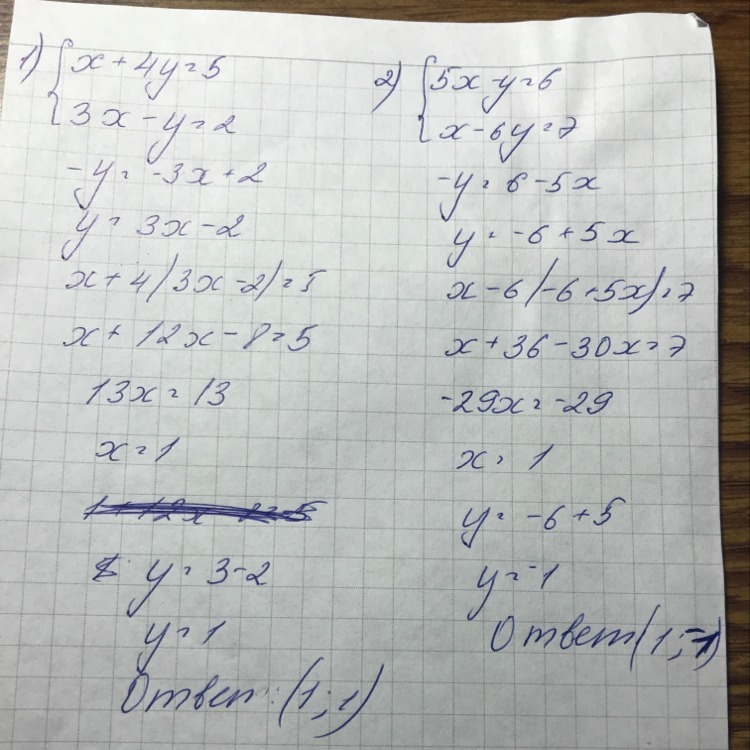 1) { x + 4y = 5
3x - y = 2
-y = -3x + 2
y = 3x - 2
x + 4(3x - 2) = 5
x + 12x - 8 = 5
13x = 13
x = 1
y = 3 - 2
y = 1
Ответ: (1; 1)
2) { 5x - y = 6
x - 6y = 7
-y = 6 - 5x
y = -6 + 5x
x - 6(-6 + 5x) = 7
x + 36 - 30x = 7
-29x = -29
x = 1
y = -6 + 5
y = -1
Ответ (1; -1)